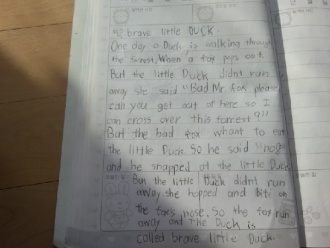 brave little DUCK.
One day a Duck is walking through
the forest, When a fox pops out.
But the little Duck didnt run
away she said "Bad Mr fox please
can you get out of here so I
can cross over this forrest?"
But the bad fox whant to
the little Duck. So he said
and he snapped at the little Duck
But the little Duck didnt run
away. She hopped and Bite on
the fox's nose. So the fox run
away and the Duck is
called brave little Duck.